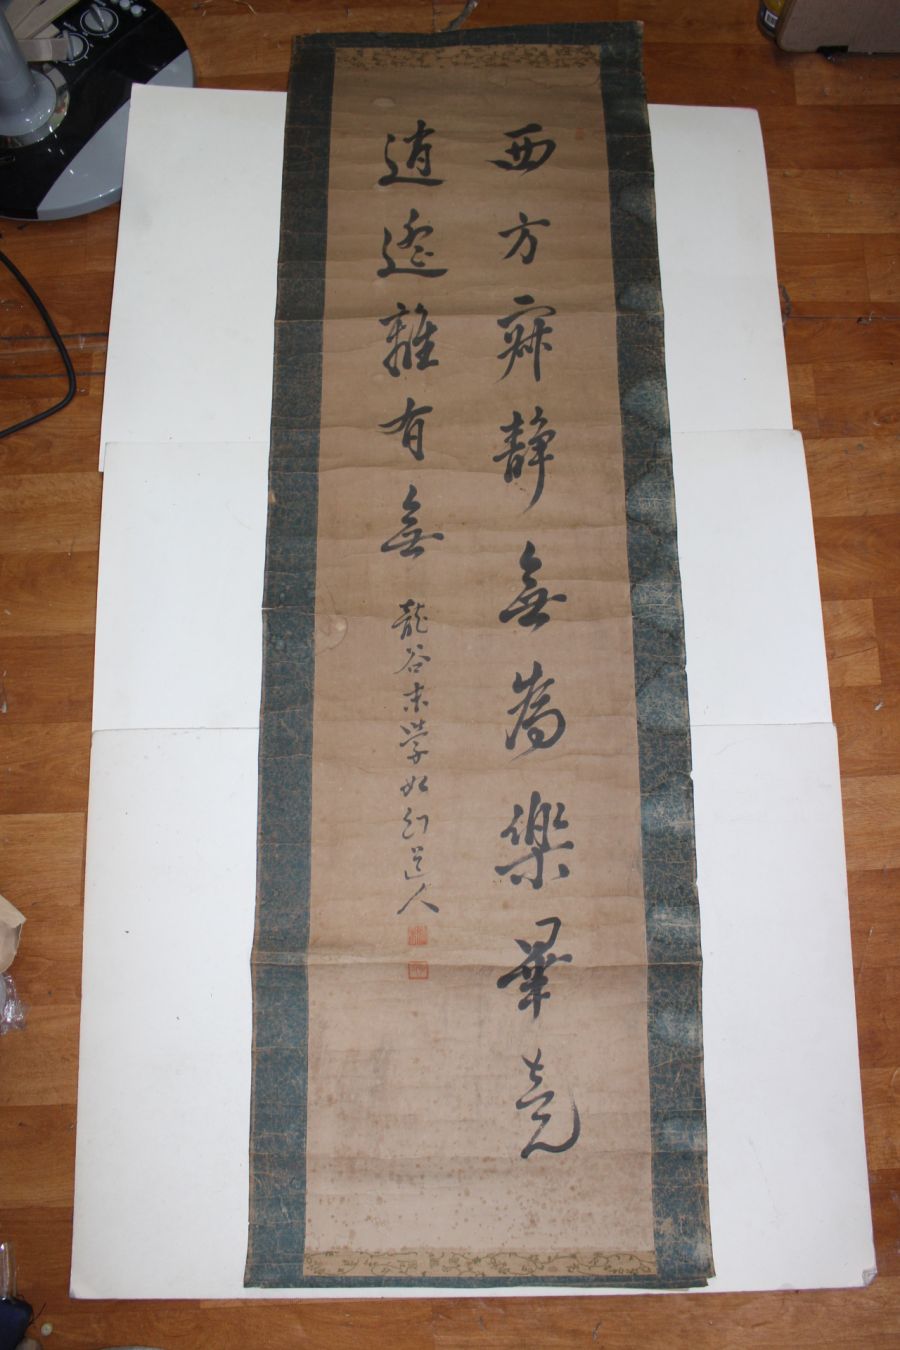 西方寂静無為樂畢竟
逍遥離有無
龍谷末学如幻道人